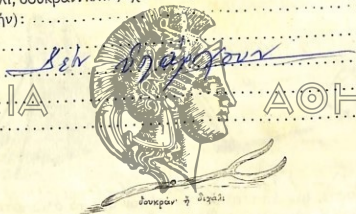 ήν):
Δέν υπάρχουν
ΙΑ ΑΘΗ
δουκράν' ἢ διχάλι